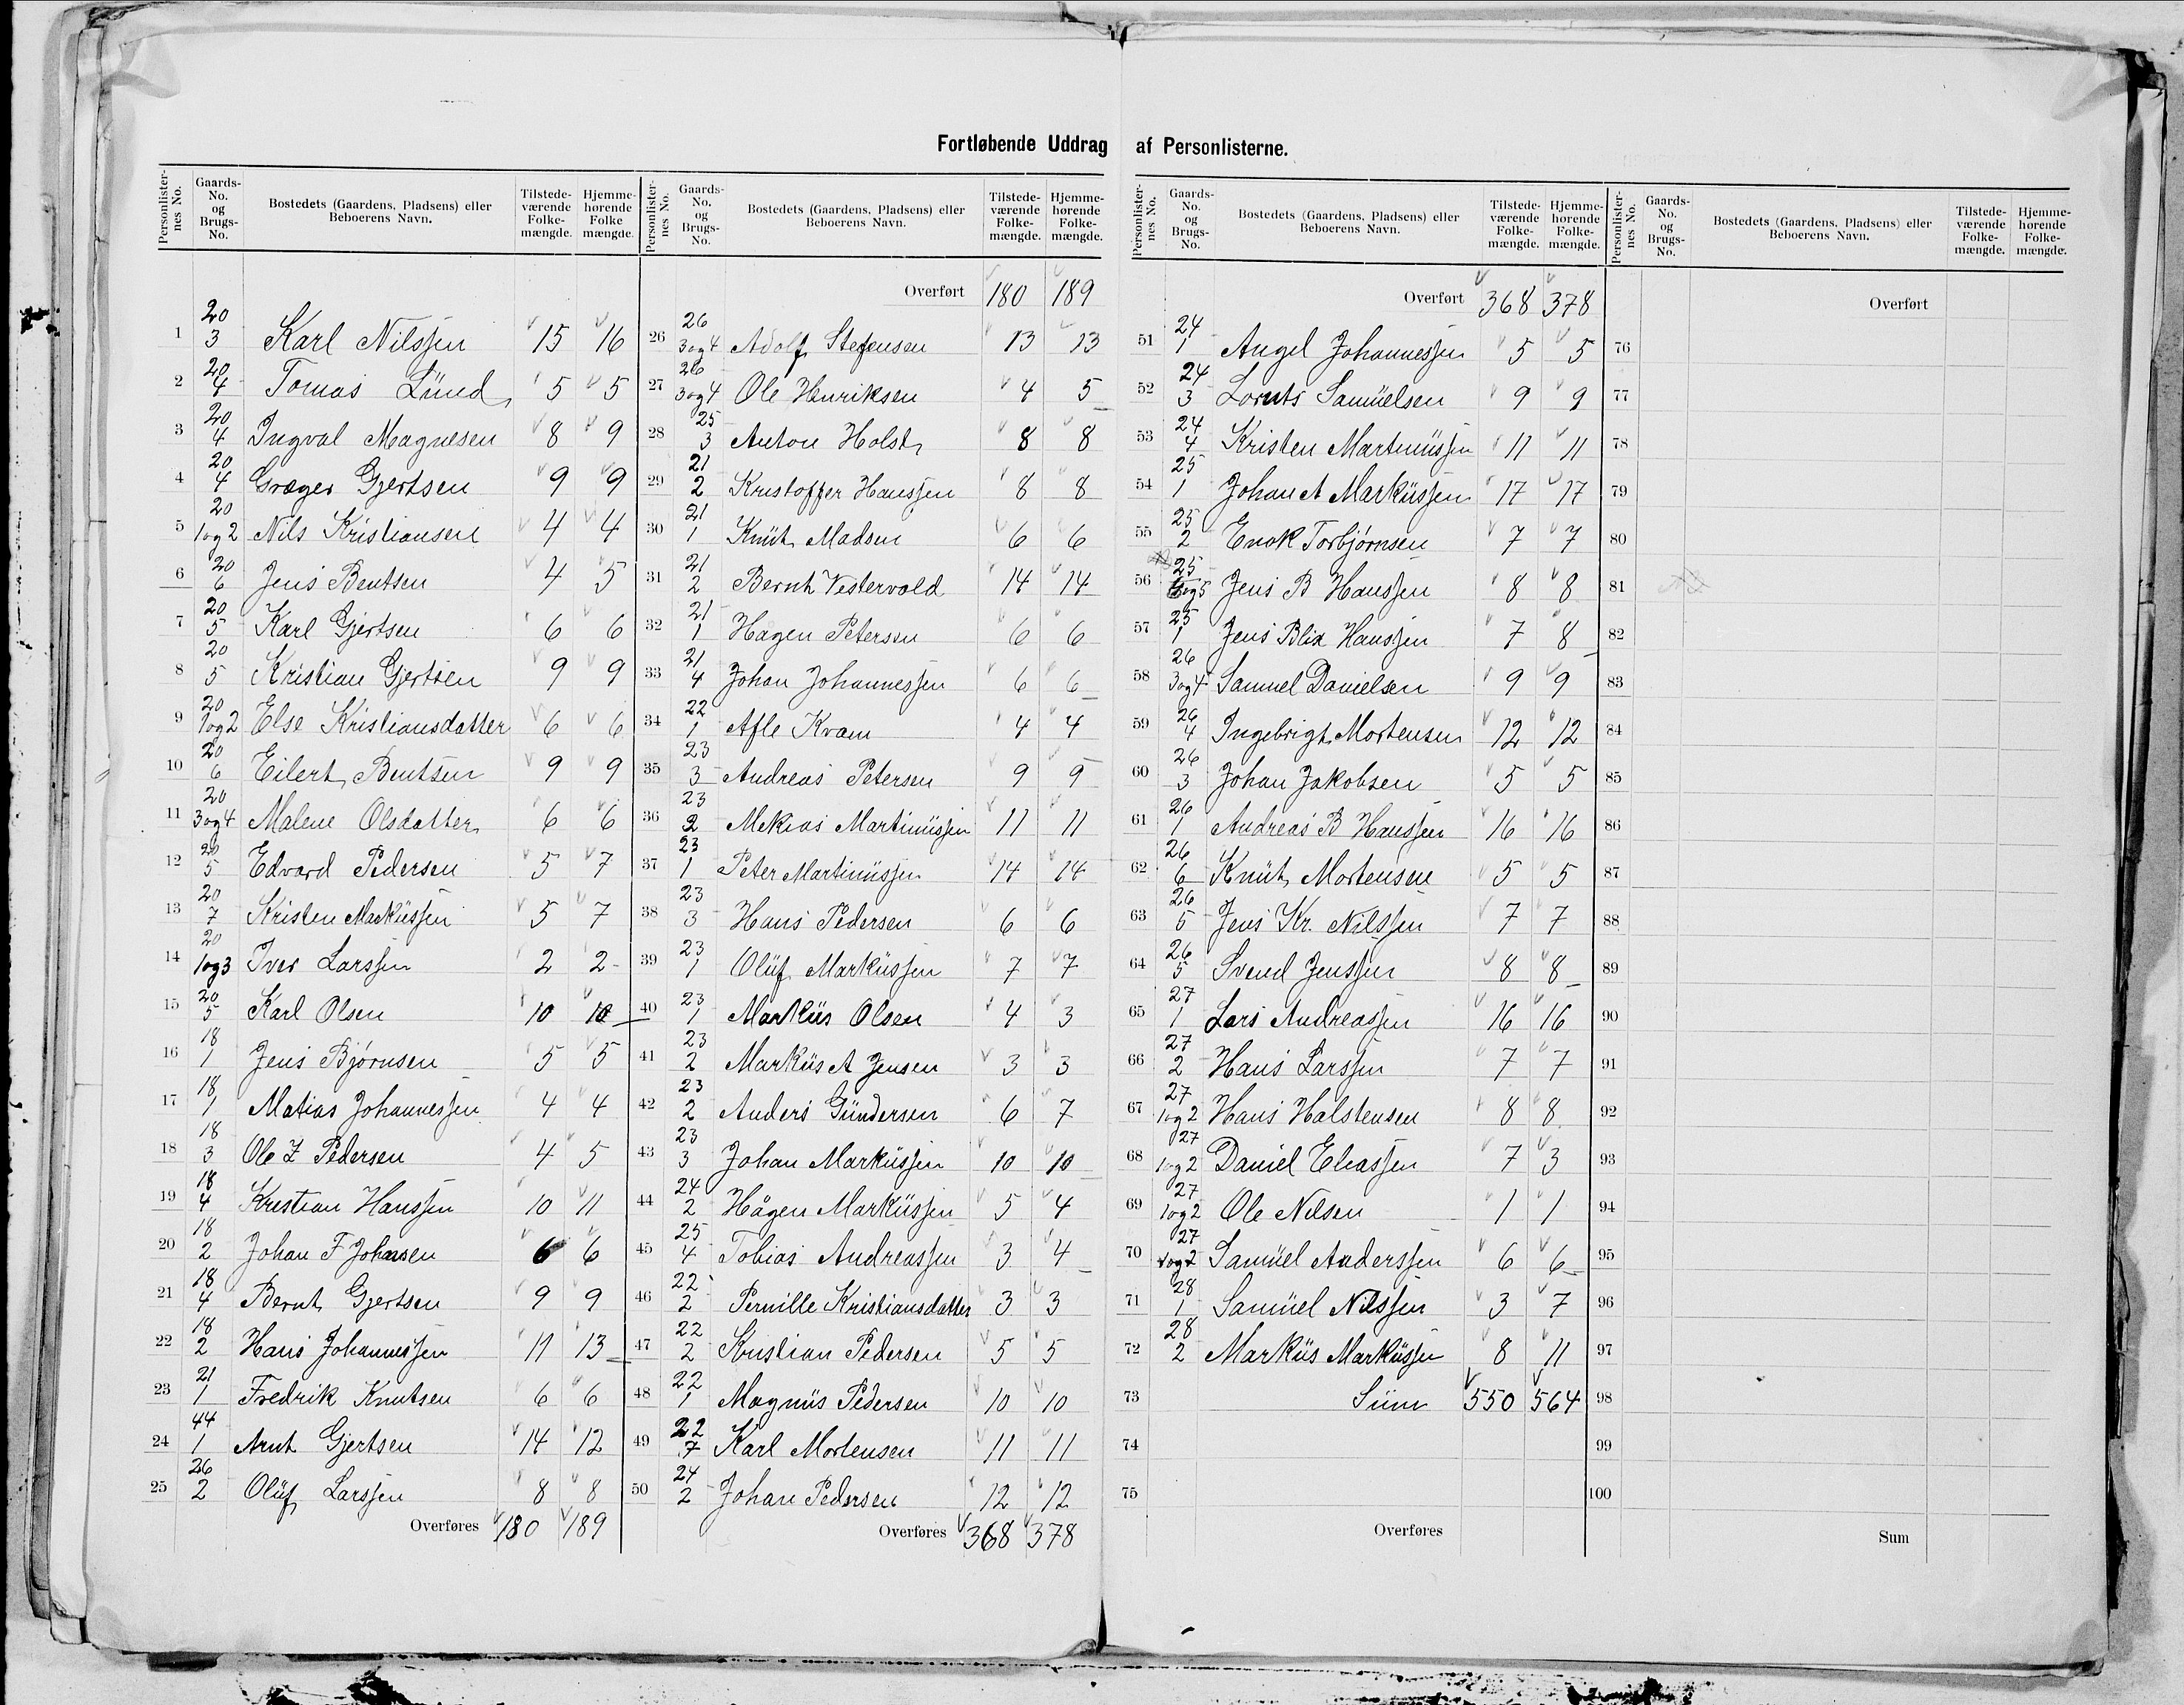 Fortløbende Uddrag af Personlisterne.
Personlisternes No. Gaards-No. og Brugs-No. Bostedets (Gaardens, Pladsens) eller Beboerens Navn. Tilstedeværende Folkemængde. Hjemmehørende Folkemængde.
1 20/3 Karl Nilssen 15 16
2 20/4 Tomas Lund 5 5
3 20/4 Ingval Magnesen 8 9
4 20/4 Græger Gjertsen 9 9
5 20/1og2 Nils Kristiansen 4 4
6 20/6 Jens Bentsen 4 5
7 20/5 Karl Gjertsen 6 6
8 20/5 Kristian Gjertsen 9 9
9 20/1og2 Else Kristiansdatter 6 6
10 20/6 Eilert Bentsen 9 9
11 20/3og4 Malene Olsdatter 6 6
12 20/5 Edvard Pedersen 5 7
13 20/7 Kristen Markussen 5 7
14 20/1og3 Iver Larssen 2 2
15 20/5 Karl Olsen 10 10
16 18/1 Jens Bjørnsen 5 5
17 18/1 Matias Johannessen 4 4
18 18/3 Ole Z Pedersen 4 5
19 18/4 Kristian Hanssen 10 11
20 18/2 Johan F Johansen 6 6
21 18/4 Bernt Gjertsen 9 9
22 18/2 Hans Johannessen 11 13
23 21/1 Fredrik Knutsen 6 6
24 44/1 Arnt Gjertsen 14 12
25 26/2 Oluf Larssen 8 8
Overføres 180 189
Overført 180 189
26 26/3og4 Adolf Stefensen 13 13
27 26/3og4 Ole Henriksen 4 5
28 25/3 Anton Holst 8 8
29 21/2 Kristoffer Hanssen 8 8
30 21/1 Knut Madsen 6 6
31 21/2 Bernt Vestervold 14 14
32 21/1 Hagen Petersen 6 6
33 21/4 Johan Johannessen 6 6
34 22/1 Afle Kvam 4 4
35 23/3 Andreas Petersen 9 9
36 23/2 Mekias Martinussen 11 11
37 23/1 Peter Martinussen 14 14
38 23/3 Hans Pedersen 6 6
39 23/1 Oluf Markussen 7 7
40 23/1 Markus Olsen 4 3
41 23/2 Markus A Jensen 3 3
42 23/2 Anders Gundersen 6 7
43 23/3 Johan Markussen 10 10
44 24/2 Hågen Markussen 5 4
45 25/4 Tobias Andreassen 3 4
46 22/2 Pernille Kristiansdatter 3 3
47 22/2 Kristian Pedersen 5 5
48 22/1 Magnus Pedersen 10 10
49 22/7 Karl Mortensen 11 11
50 24/2 Johan Pedersen 12 12
Overføres 368 378
Overført 368 378
51 24/1 Angel Johannessen 5 5
52 24/3 Lornts Samuelsen 9 9
53 24/4 Kristen Martinussen 11 11
54 25/1 Johan A Markussen 17 17
55 25/2 Enok Torbjørnsen 7 7
56 25/og5 Jens B Hanssen 8 8
57 25/1 Jens Blix Hanssen 7 8
58 26/3og4 Samuel Danielsen 9 9
59 26/4 Ingebrigt Mortensen 12 12
60 26/3 Johan Jakobsen 5 5
61 26/1 Andreas B Hanssen 16 16
62 26/6 Knut Mortensen 5 5
63 26/5 Jens Kr. Nilssen 7 7
64 26/5 Svend Jenssen 8 8
65 27/1 Lars Andreassen 16 16
66 27/2 Hans Larssen 7 7
67 27/1og2 Hans Halstensen 8 8
68 27/1og2 Daniel Eliassen 7 3
69 27/1og2 Ole Nilsen 1 1
70 27/1og2 Samuel Anderssen 6 6
71 28/1 Samuel Nilssen 3 7
72 28/2 Markus Markussen 8 11
73 Sum 550 564
74
75
Overføres
Overført
76
77
78
79
80
81
82
83
84
85
86
87
88
89
90
91
92
93
94
95
96
97
98
99
100
Sum